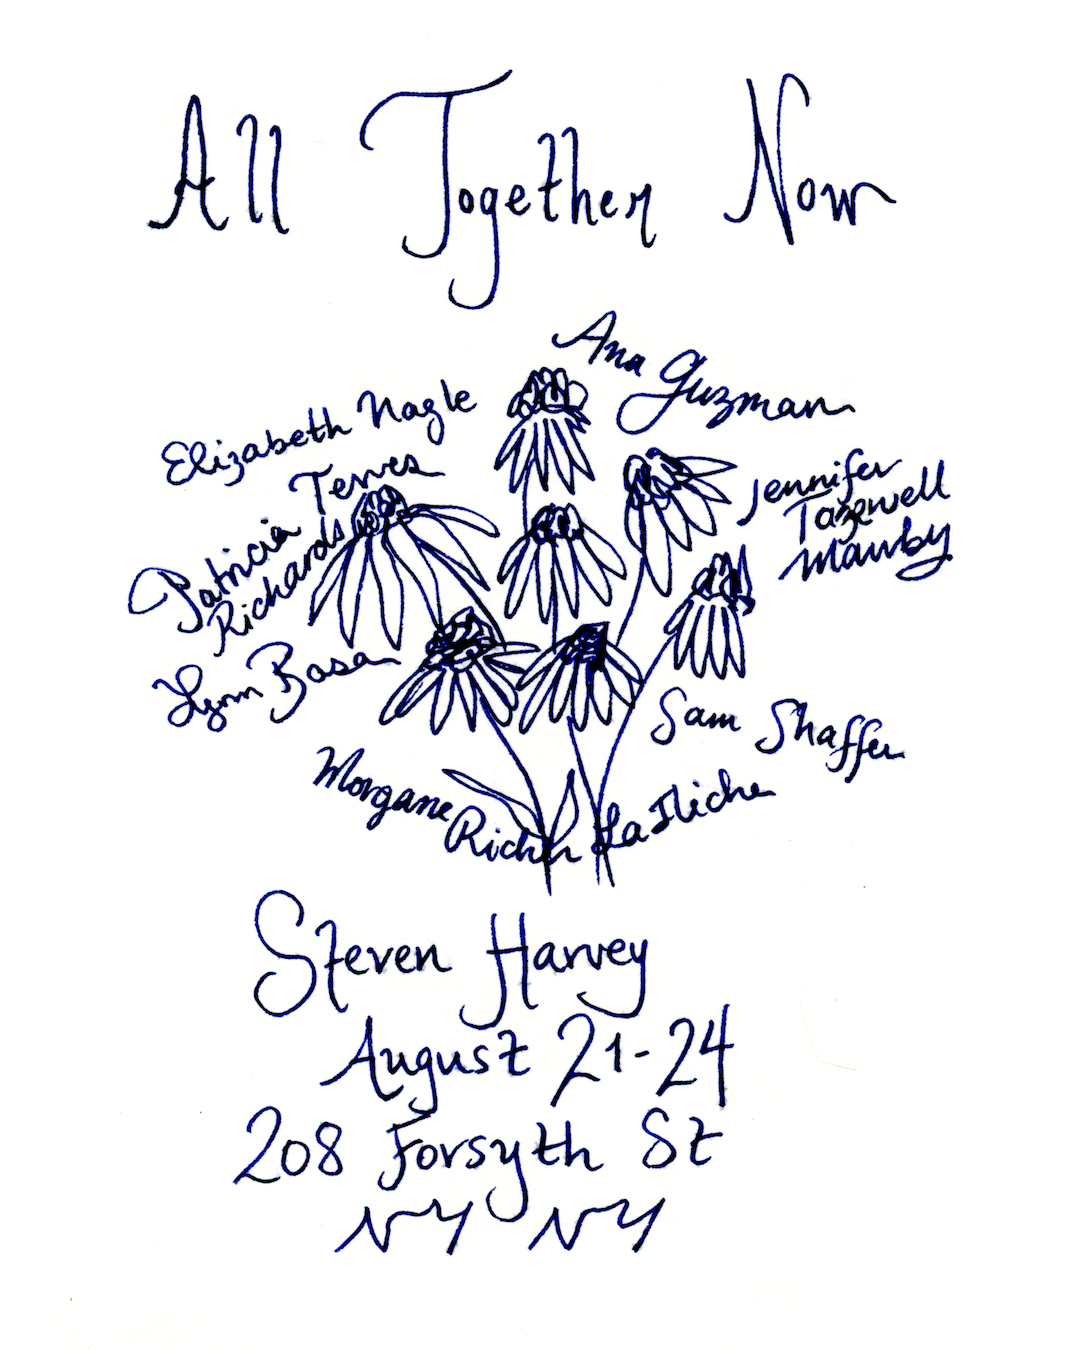 All Together Now
Ana Guzman
Elizabeth Nagle
Jennifer
Tazewell
Mawby
Patricia Terres
Richards
Lynn Basa
Sam Shaffer
Morgane Richer La Flèche
Steven Harvey
August 21-24
208 Forsyth St
NY NY